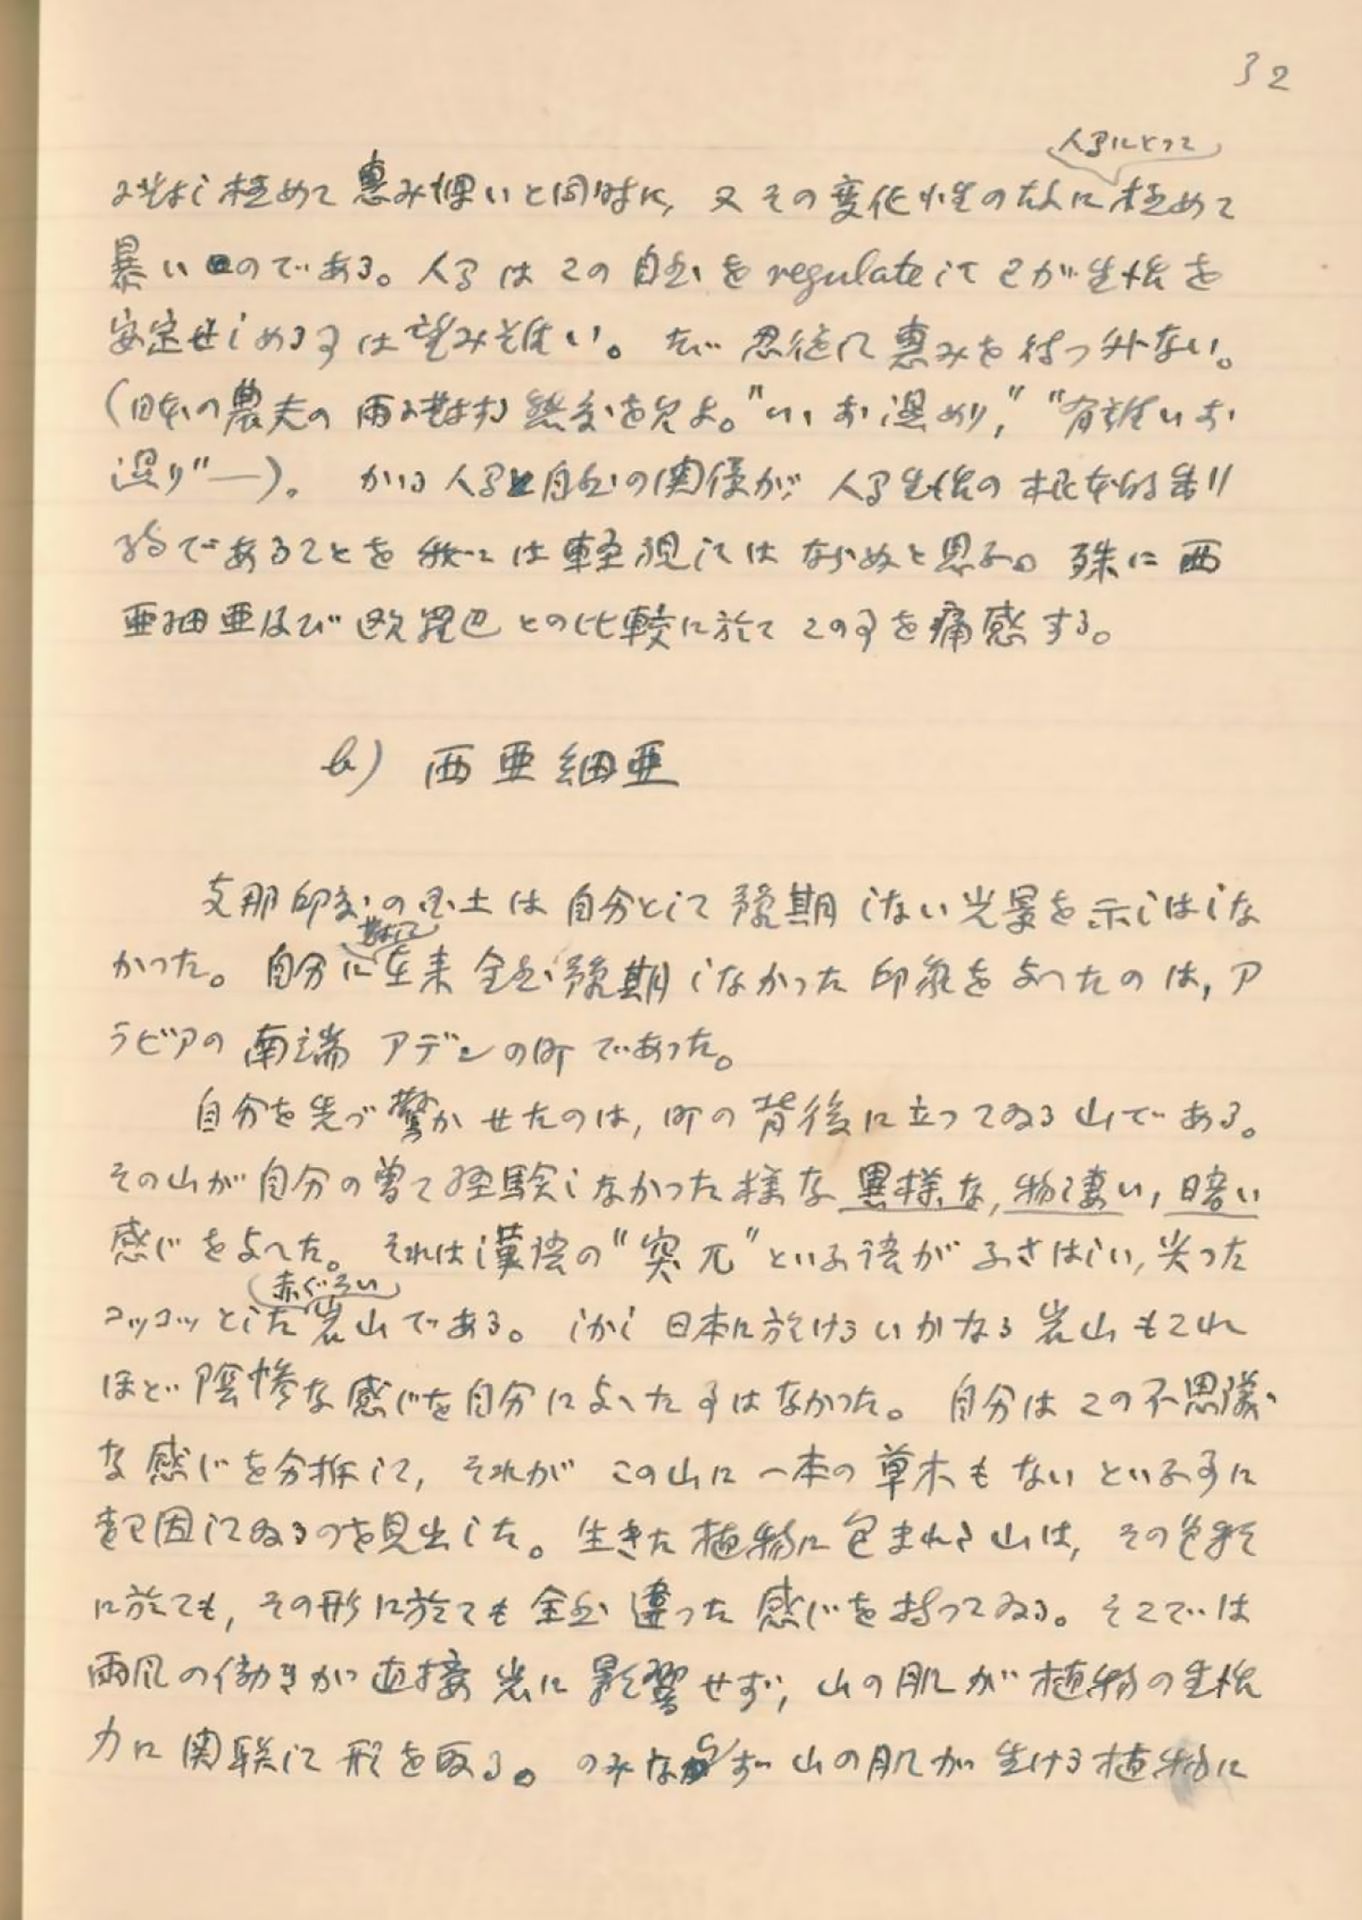 32
人間にとって
対し極めて恵み深いと同時に, 又その変化性の故に極めて
暴いのである。人間はこの自然をregulateして己が生活を
安定せしめる事は望み難い。たゞ忍従して恵みを待つ外ない。
(日本の農夫の雨に対する態度を見よ。"いゝお湿り," "有難いお
湿り"―)。かゝる人間と自然の関係が人間生活の根本的制
約であることを我々は軽視してはならぬと思ふ。殊に西
亜細亜及び欧羅巴との比較に於てこの事を痛感する。
b) 西亜細亜
支那印度の国土は自分として予期しない光景を示しはしな
かった。自分に
対して
在来全然予期しなかった印象を与へたのは, ア
ラビアの南端アデンの町であった。
自分を先づ驚かせたのは, 町の背後に立ってゐる山である。
その山が自分の曽て経験しなかった様な異様な, 物凄い, 暗い
感じを与へた。それは漢語の"突兀"といふ語がふさはしい, 尖った
赤ぐろい
コツコツとした岩山である。しかし日本に於けるいかなる岩山もこれ
ほど陰惨な感じを自分に与へた事はなかった。自分はこの不思議
な感じを分析して, それがこの山に一本の草木もないといふ事に
起因してゐるのを見出した。生きた植物に包まれた山は, その色彩
に於ても, その形に於ても全然違った感じを持ってゐる。そこでは
雨風の働きが直接岩に影響せず, 山の肌が植物の生活
力に関聯して形を取る。のみならず山の肌が生ける植物に